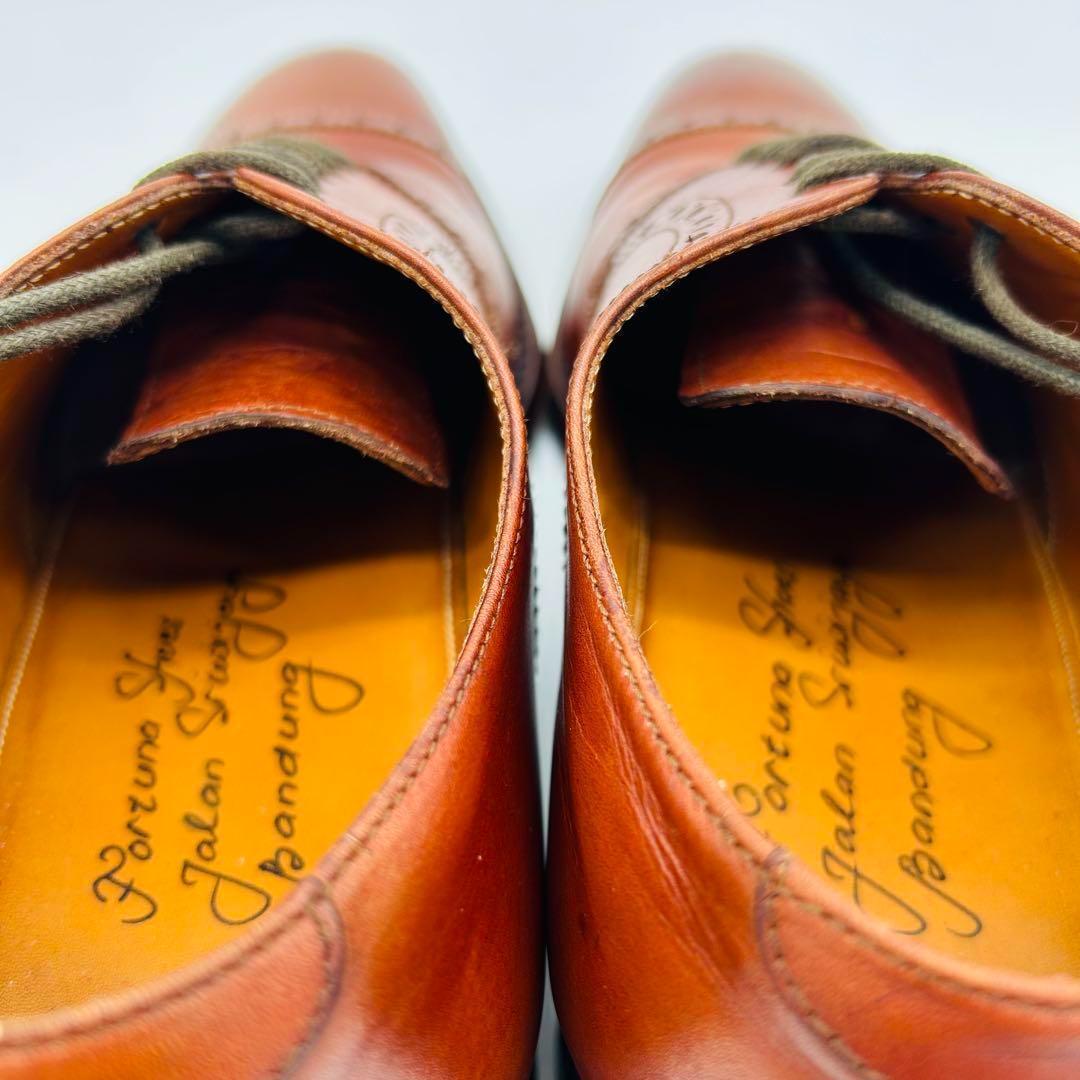 Fortuna Shoes
Jalan Sriwijaya
Bandung
Fortuna Shoes
Jalan Sriwijaya
Bandung